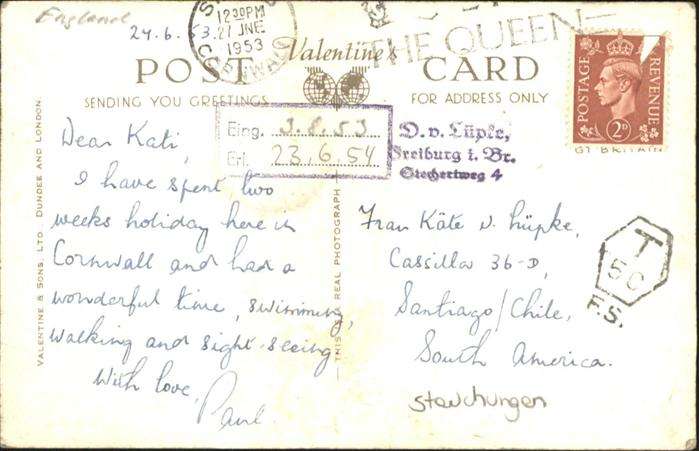 England
24.6.53
12 30 PM
27 JNE
1953
CORNWALL
THE QUEEN
Valentine's
POST CARD
SENDING YOU GREETINGS
FOR ADDRESS ONLY
POSTAGE REVENUE
2D
GT BRITAIN
Eing. 3.8.53
Erl. 23.6.54
D.v. Lüpke,
Freiburg i. Br.
Stechertweg 4
Dear Kati,
I have spent two
weeks holiday here in
Cornwall and had a
wonderful time, swimming,
walking and sight-seeing
With love,
Paul
Frau Käte v. Lüpke,
Cassilla 36-D,
Santiago/Chile,
South America.
T
50
F.S.
VALENTINE & SONS, LTD. DUNDEE AND LONDON.
THIS IS A REAL PHOTOGRAPH